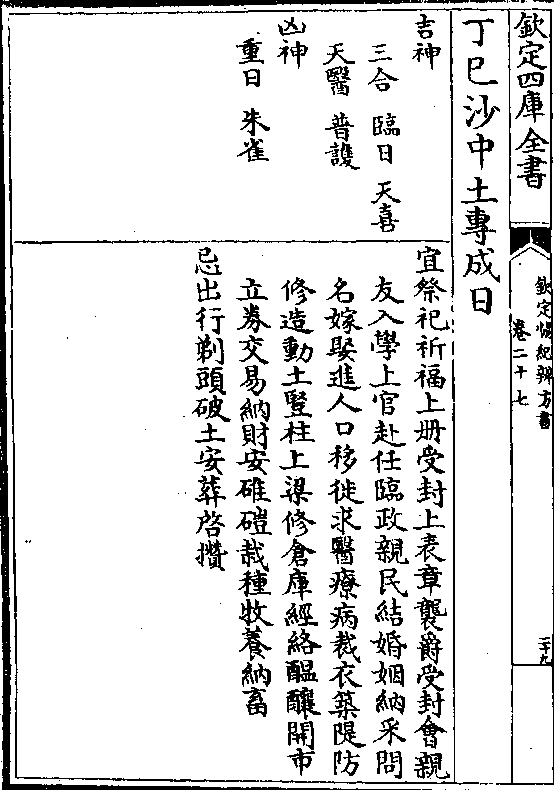 欽定四庫全書
欽定協紀辨方書
卷二十七
三十九
丁巳沙中土專成日
吉神
三合 臨日 天喜
天醫 普護
凶神
重日 朱雀
宜祭祀祈福上册受封上表章襲爵受封會親
友入學上官赴任臨政親民結婚姻納采問
名嫁娶進人口移徙求醫療病裁衣築隄防
修造動土豎柱上梁修倉庫經絡醞釀開市
立券交易納財安碓磑栽種牧養納畜
忌出行剃頭破土安葬啓攢